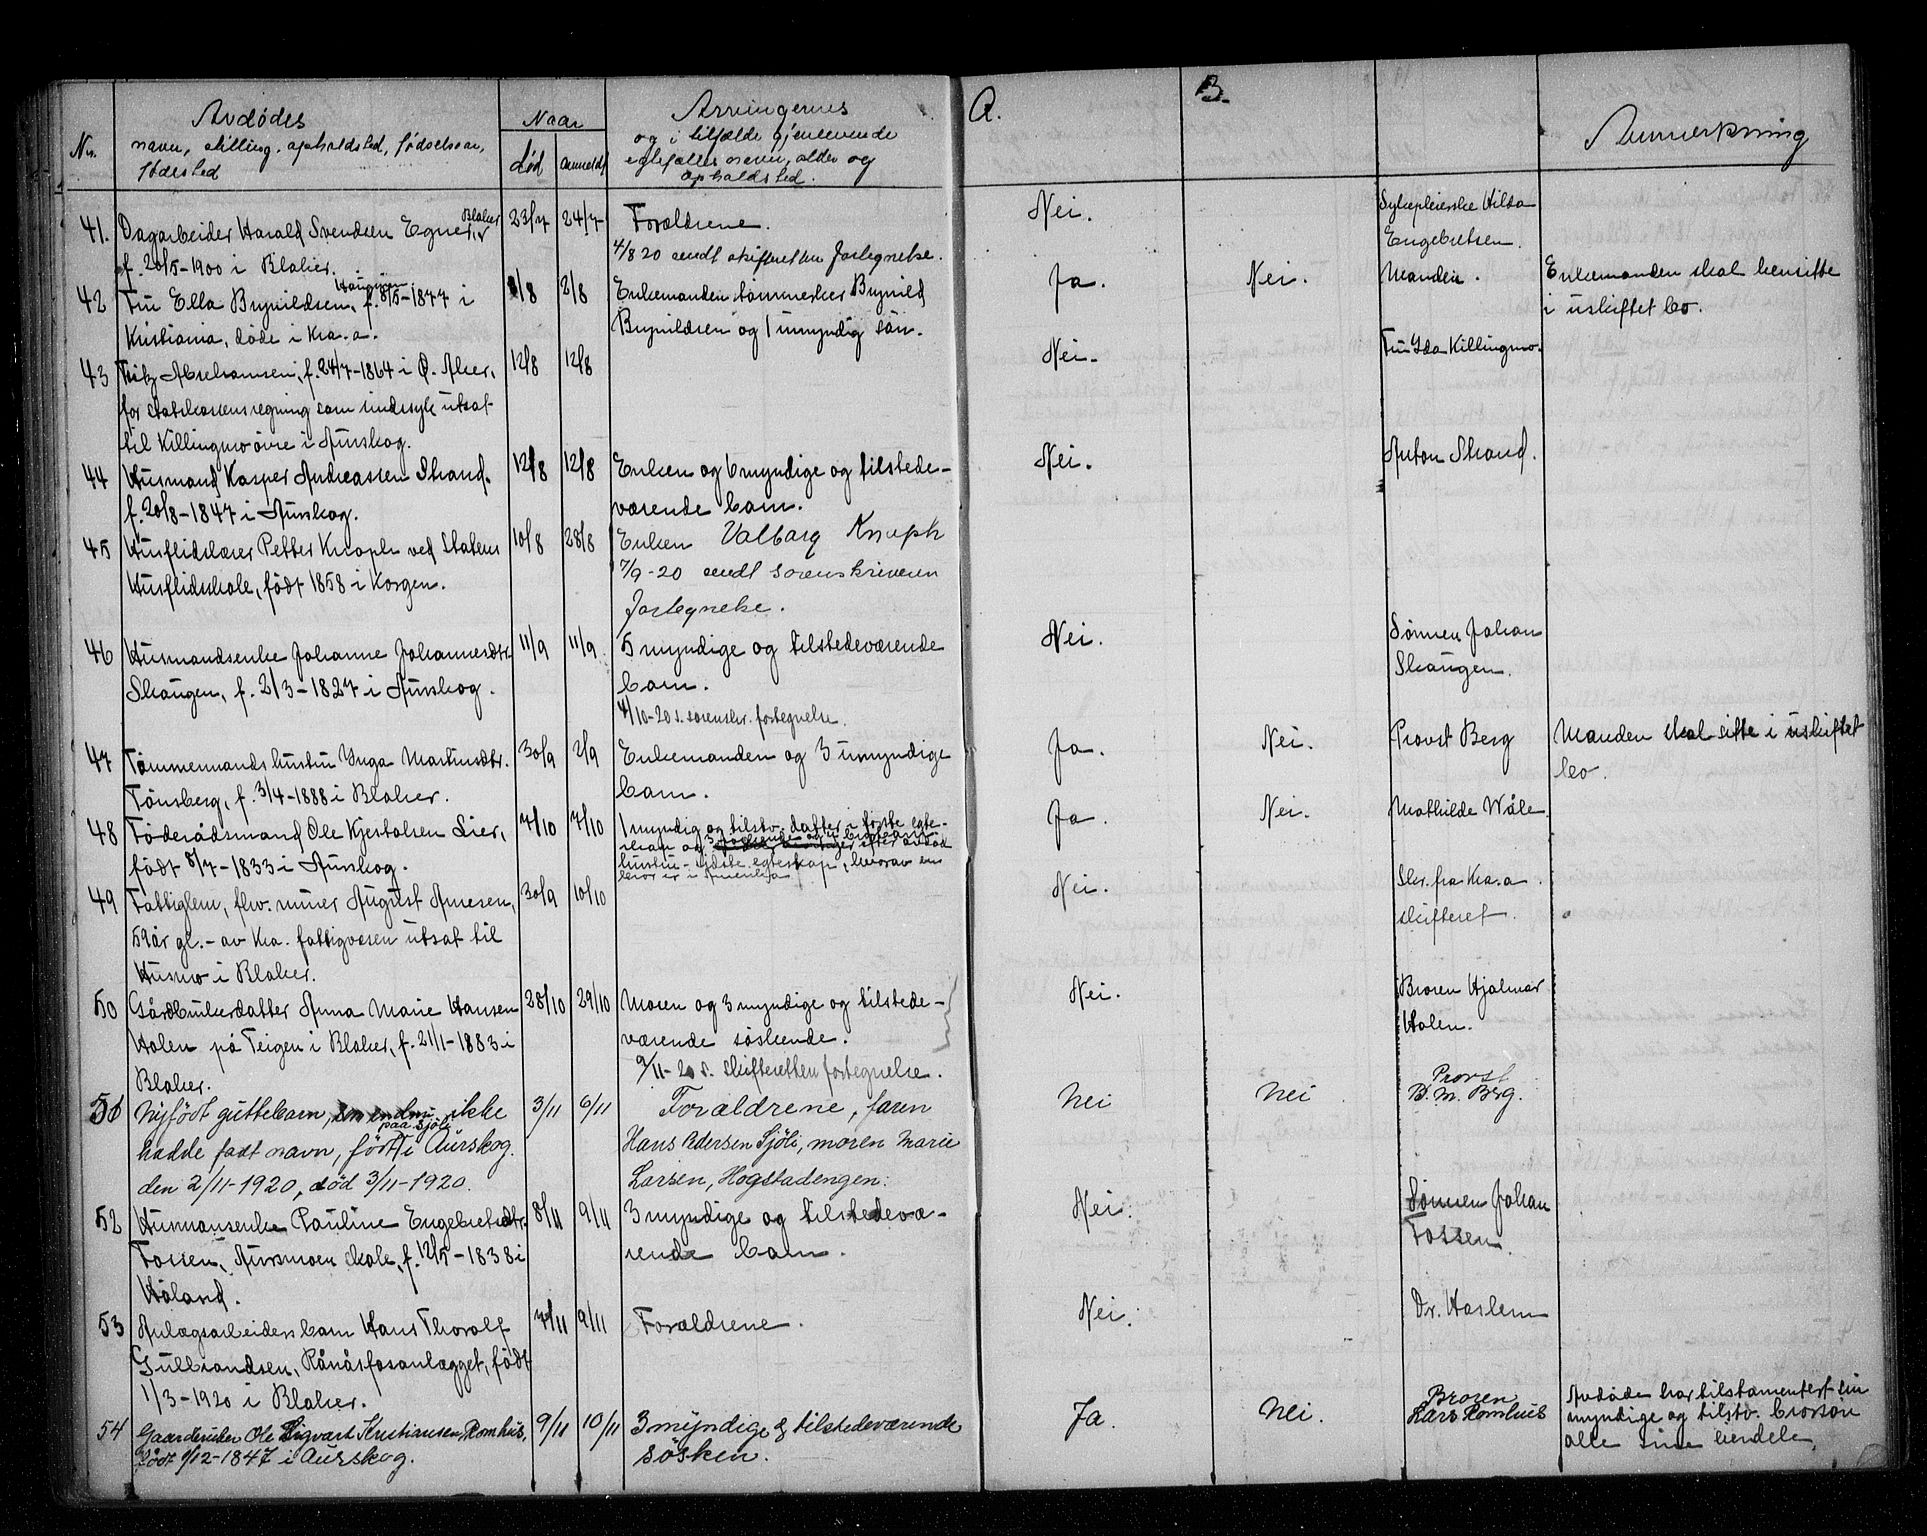 Avdødes
Nr. navn, stilling, opholdsted, fødselsaar,
fødested
Naar
død anmeldt
Arvingernes
og i tilfælde gjenlevende
egtefælles navn, alder og
opholdsted.
A.
B.
Anmerkning
41. Dagarbeider Harald Svendsen Egner, Blaker 23/7 24/7 Forældrene. Nei. Sykepleierske Hilda
f. 20/5-1900 i Blaker. 4/8 20 sendt skifteretten fortegnelse. Engebretsen.
42 Fru Ella Brynildsen, f. 8/5-1877 i 1/8 2/8 Enkemanden tømmermester Brynild Ja. Nei. Manden. Enkemanden skal hensitte
Kristiania, døde i Kra.a. Brynildsen og 1 umyndig søn. i uskiftet bo.
43 Fritz Abrahamsen, f. 24/7-1864 i Ø. Aker, 12/8 12/8 Nei. Fru Ida Killingmo.
for statskassens regning som sindssyk utsat
til Killingmo øvre i Aurskog.
44 Husmand Kasper Andreassen Strand. 12/8 12/8 Enken og 6 myndige og tilstede- Nei. Anton Strand.
f. 20/8-1847 i Aurskog. værende barn.
45 Husflidslærer Petter Knoph ved Statens 10/8 28/8 Enken Valborg Knoph
Husflidskole, født 1858 i Korgen. 7/9-20 sendt sorenskriveren
fortegnelse.
46 Husmandsenke Johanne Johannesdtr. 11/9 11/9 5 myndige og tilstedeværende Nei. Sønnen Johan
Skaugen, f. 2/3-1827 i Aurskog. barn. Skaugen.
4/10-20 s. sorenskr. fortegnelse.
47 Tømmermands hustru Inga Martinsdtr. 30/9 2/9 Enkemanden og 3 umyndige Ja. Nei. Provst Berg Manden skal sitte i uskiftet
Tønsberg, f. 3/4-1888 i Blaker. barn. bo.
48 Føderådsmand Ole Kjestolsen Lier, 7/10 7/10 1 myndig og tilstv. datter i første egte- Ja. Nei. Mathilde Wåle
født 8/7-1833 i Aurskog. skap og efter avdød
hustrus sidste egteskap, hvorav en
bror er i Amerika
49 Fattiglem, fhv. murer August Arnesen, 30/9 10/10 Nei. Skr. fra Kra.a
59 år gl. - av Kra. fattigvæsen utsat til skifteret.
Husmo i Blaker.
50 Gårdbrukerdatter Anna Marie Hansen 28/10 29/10 Moren og 3 myndige og tilstede- Nei. Broren Hjalmar
Holen på Teigen i Blaker, f. 21/1-1883 i værende søskende. Holen.
Blaker. 9/11-20 s. skifteretten fortegnelse.
51 Nyfødt guttebarn, som endnu ikke 3/11 6/11 Forældrene, faren Nei Nei Provst B. M. Berg.
hadde faat navn, født paa Sjøli i Aurskog. Hans Pedersen Sjøli, moren Marie
den 2/11-1920, død 3/11-1920. Larsen, Hogstadengen.
52 Husmansenke Pauline Engebretsdtr. 8/11 9/11 3 myndige og tilstedevæ- Nei. Sønnen Johan
Fossen, Aursmoen skole, f. 12/5-1838 i rende barn. Fossen.
Høland.
53 Anlægsarbeiders barn Hans Thorolf 7/11 9/11 Forældrene. Nei. Dr. Haslem
Gulbrandsen, Rånåsfosanlægget, født
1/3-1920 i Blaker.
54 Gaardbruker Ole Sigvart Kristiansen Romhus, 9/11 10/11 3 myndige & tilstedeværende Ja. Nei. Broren Lars Romhus Avdøde har tilstamentert sin
født 1/12-1847 i Aurskog. søsken. myndige og tilstv. brorsøn
alle sine eiendele.